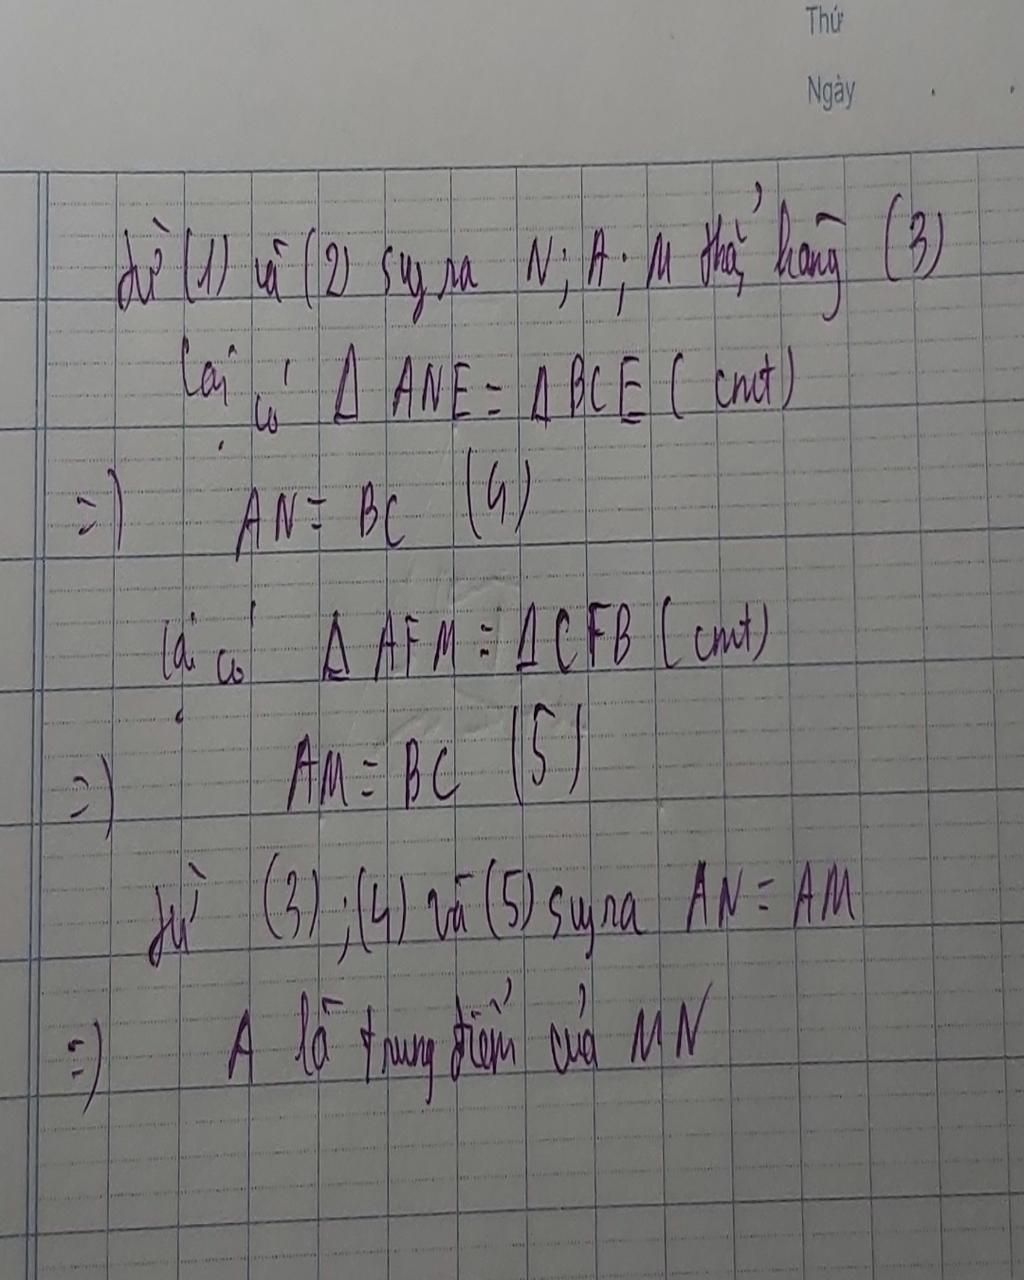 Thứ
Ngày
Từ (1) và (2) suy ra N; A; M thẳng hàng (3)
Lại có Δ ANE = Δ BCE (cmt)
=) AN = BC (4)
Lại có Δ AFM = Δ CFB (cmt)
=) AM = BC (5)
Từ (3); (4) và (5) suy ra AN = AM
=) A là trung điểm của MN